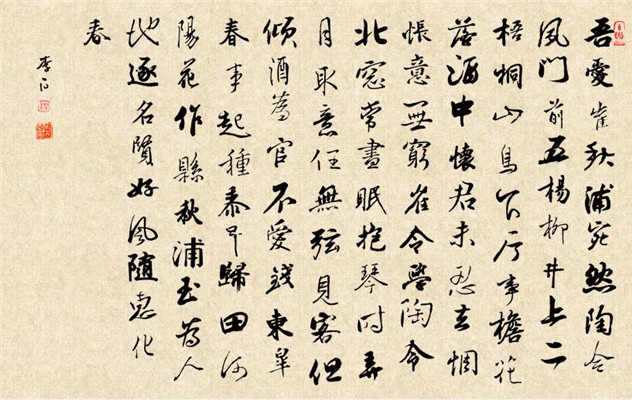 吾愛崔秋浦宛然陶令
風門前五楊柳井上二
梧桐山鳥下厅事檐花
落酒中懷君未忍去惆
悵意無窮崔令學陶令
北窓常晝眠抱琴時弄
月取意任無弦見客但
傾酒為官不愛錢東皋
春事起種黍早歸田河
陽花作縣秋浦玉為人
地逐名賢好風隨惠化
春
李白